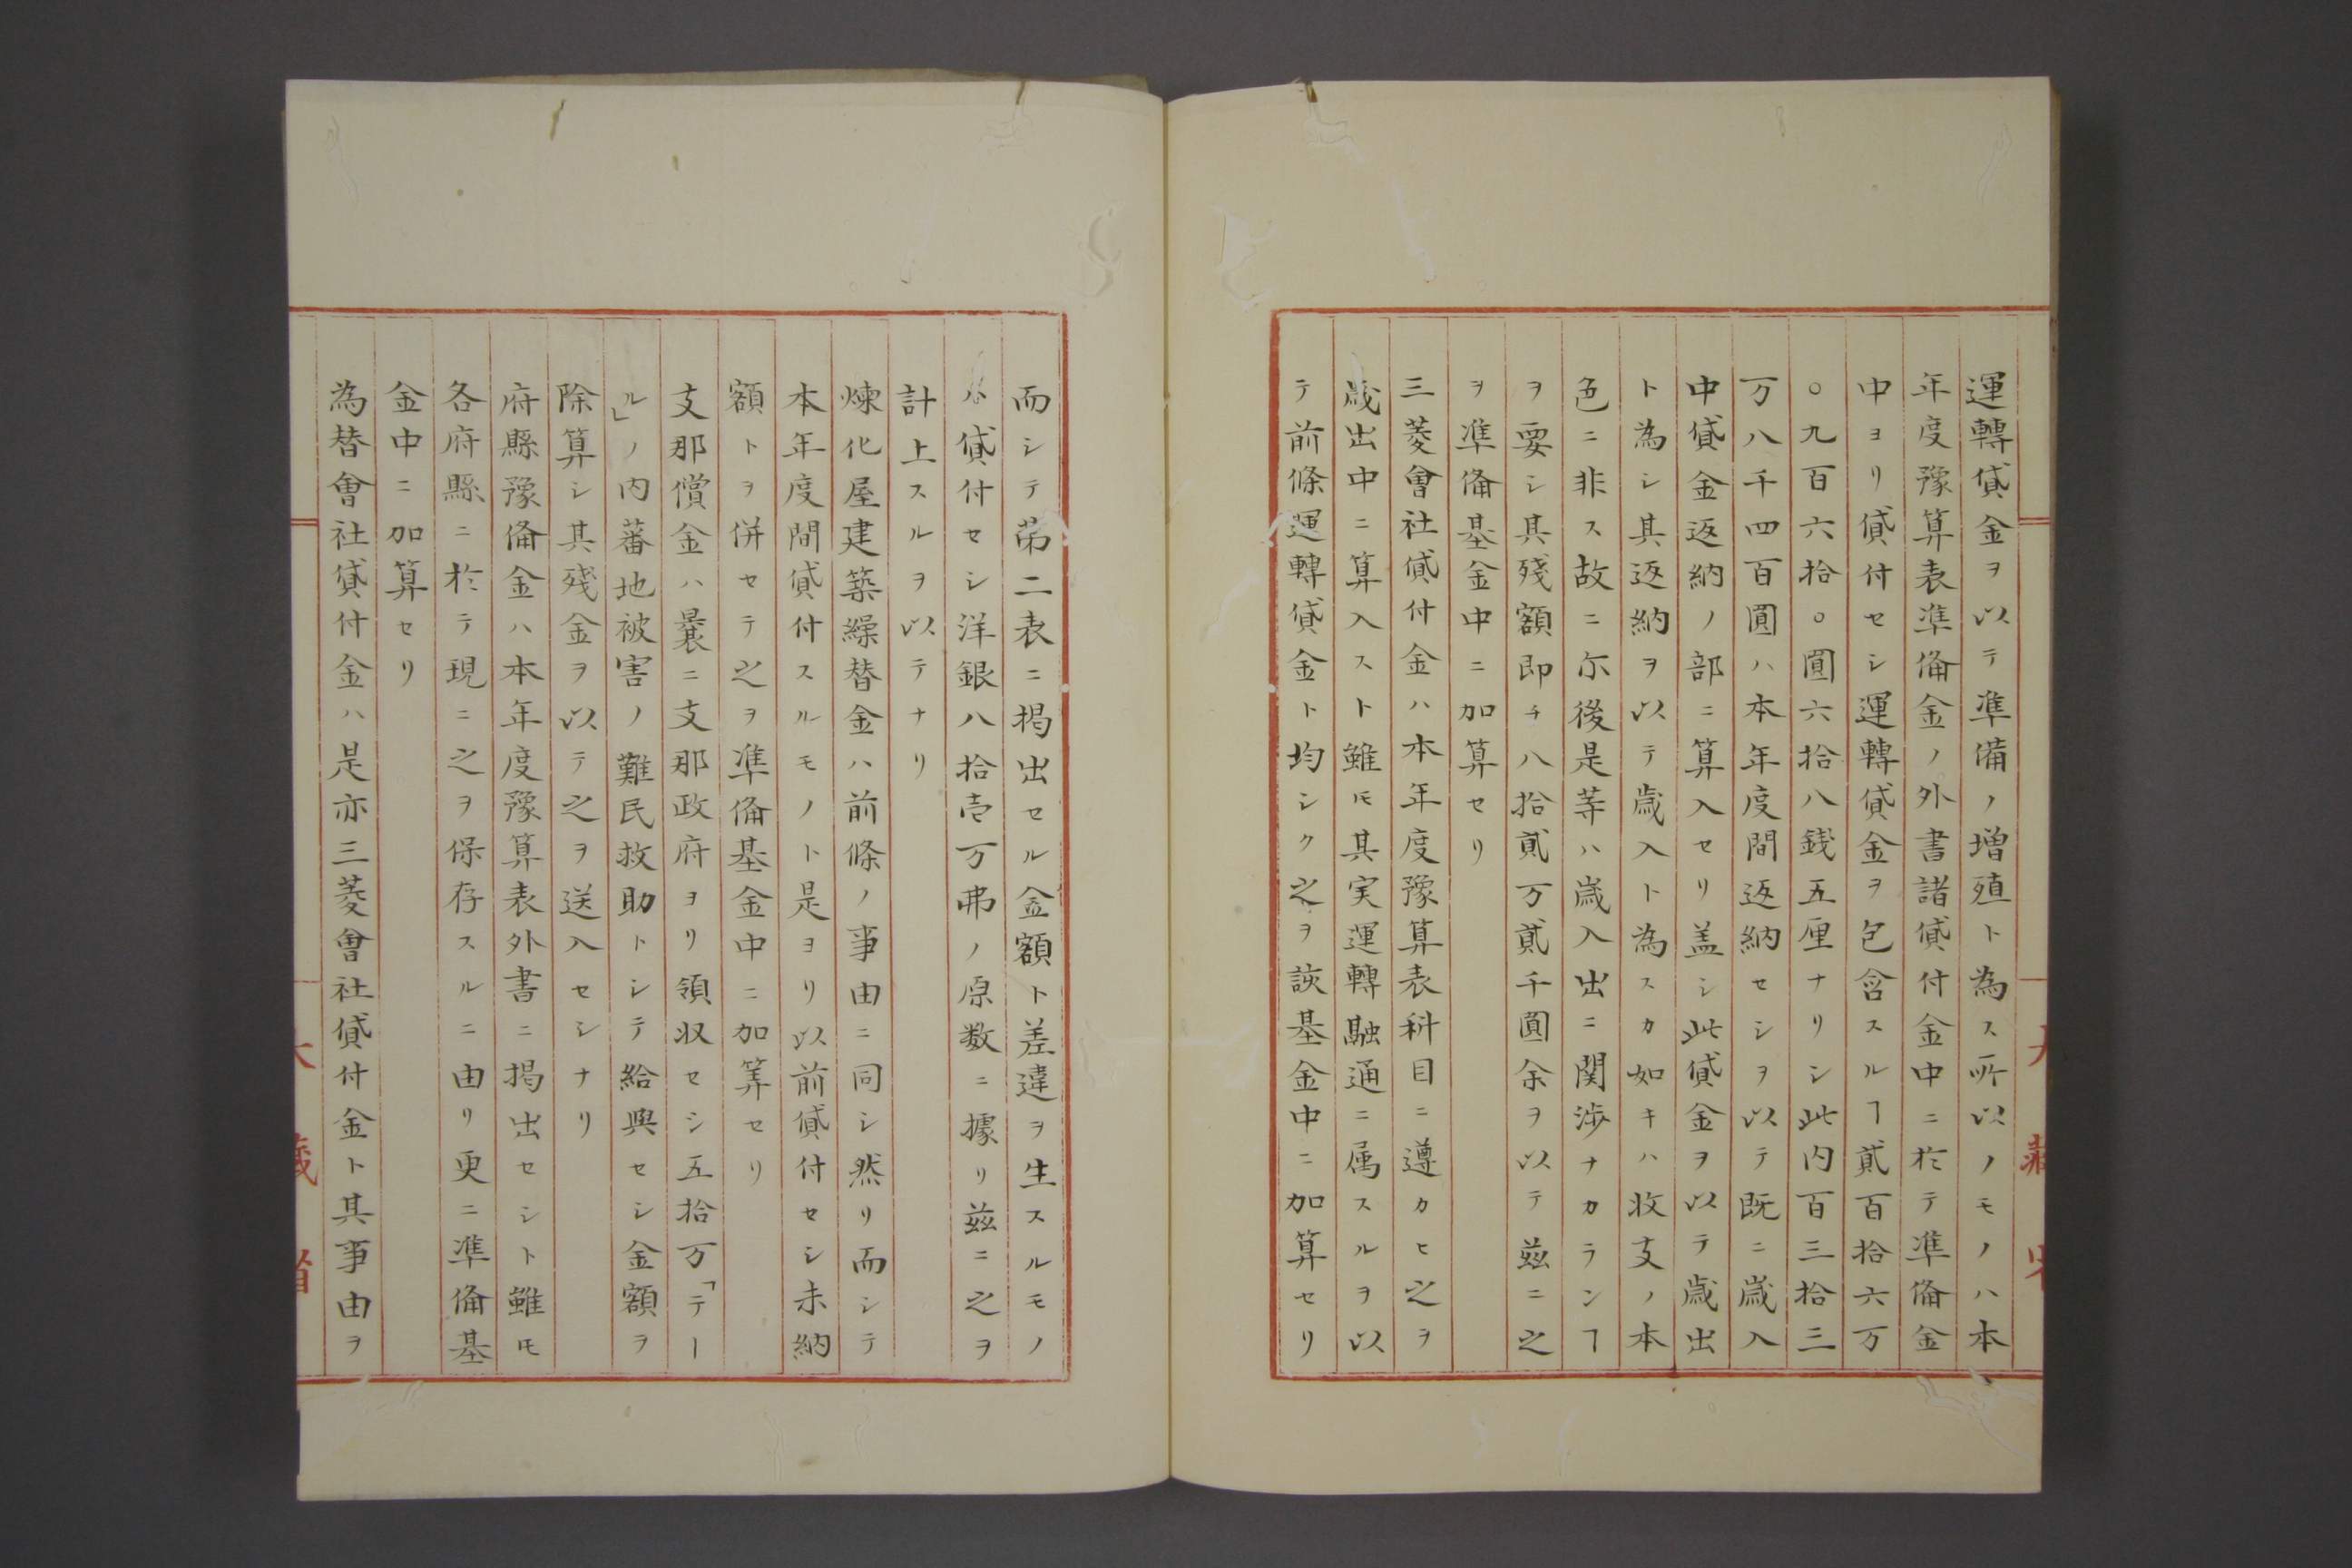 運轉貸金ヲ以テ準備ノ增殖ト為ス所以ノモノハ本
年度豫算表準備金ノ外書諸貸付金中ニ於テ準備金
中ヨリ貸付セシ運轉貸金ヲ包含スルヿ貳百拾六万
〇九百六拾〇圓六拾八銭五厘ナリシ此内百三拾三
万八千四百圓ハ本年度間返納セシヲ以テ既ニ歳入
中貸金返納ノ部ニ算入セリ盖シ此貸金ヲ以テ歳出
ト為シ其返納ヲ以テ歳入ト為スカ如キハ收支ノ本
色ニ非ス故ニ尓後是等ハ歳入出ニ関渉ナカランヿ
ヲ要シ其殘額即チ八拾貳万貳千圓余ヲ以テ茲ニ之
ヲ準備基金中ニ加算セリ
三菱會社貸付金ハ本年度豫算表科目ニ遵カヒ之ヲ
歳出中ニ算入スト雖𪜈其実運轉融通ニ属スルヲ以
テ前條運轉貸金ト均シク之ヲ該基金中ニ加算セリ
而シテ苐二表ニ掲出セル金額ト差違ヲ生スルモノ
ハ貸付セシ洋銀八拾壱万弗ノ原数ニ據リ茲ニ之ヲ
計上スルヲ以テナリ
煉化屋建築繰替金ハ前條ノ事由ニ同シ然リ而シテ
本年度間貸付スルモノト是ヨリ以前貸付セシ未納
額トヲ併セテ之ヲ準備基金中ニ加筭セリ
支那償金ハ曩ニ支那政府ヨリ領収セシ五拾万「テー
ル」ノ内蕃地被害ノ難民救助トシテ給與セシ金額ヲ
除算シ其殘金ヲ以テ之ヲ送入セシナリ
府縣豫備金ハ本年度豫算表外書ニ掲出セシト雖𪜈
各府縣ニ於テ現ニ之ヲ保存スルニ由リ更ニ準備基
金中ニ加算セリ
為替會社貸付金ハ是亦三菱會社貸付金ト其事由ヲ
大藏省